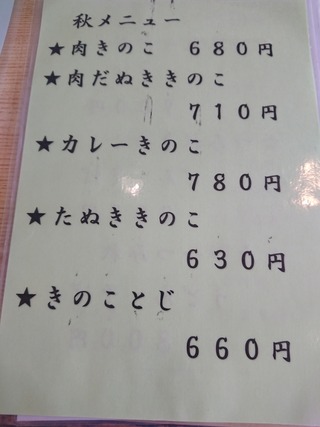 秋メニュー
★肉きのこ 680円
★肉だぬききのこ
710円
★カレーきのこ
780円
★たぬききのこ
630円
★きのことじ
660円